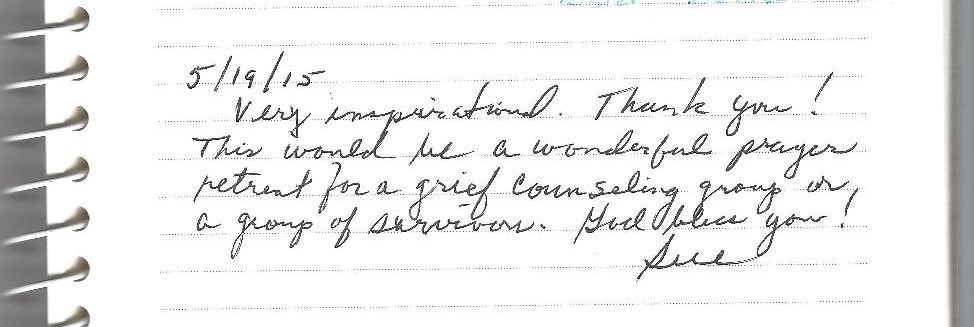 5/19/15
Very inspirational. Thank you!
This would be a wonderful prayer
retreat for a grief counseling group or,
a group of survivors. God bless you!
Sue